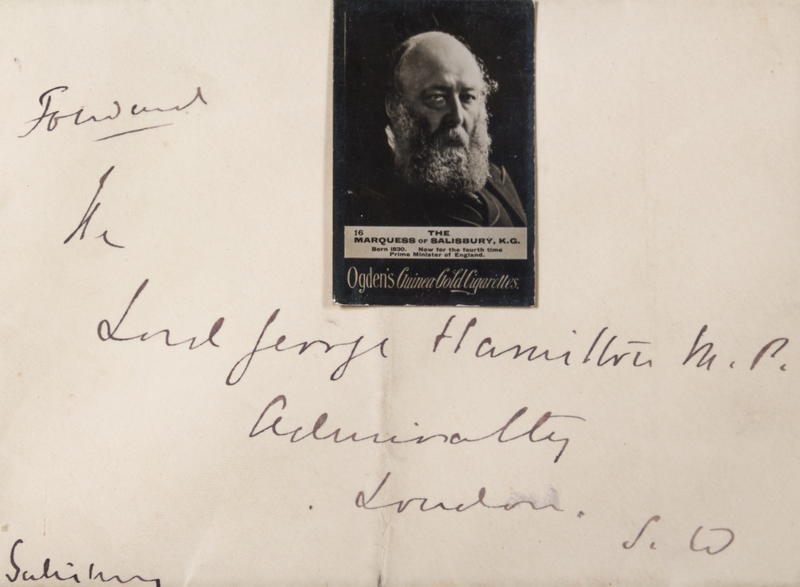 Forward
The
Lord George Hamilton M.P.
Admiralty
London.
S.W
Salisbury
16
THE
MARQUESS OF SALISBURY, K.G.
Born 1830. Now for the fourth time
Prime Minister of England.
Ogden's Guinea Gold Cigarettes.